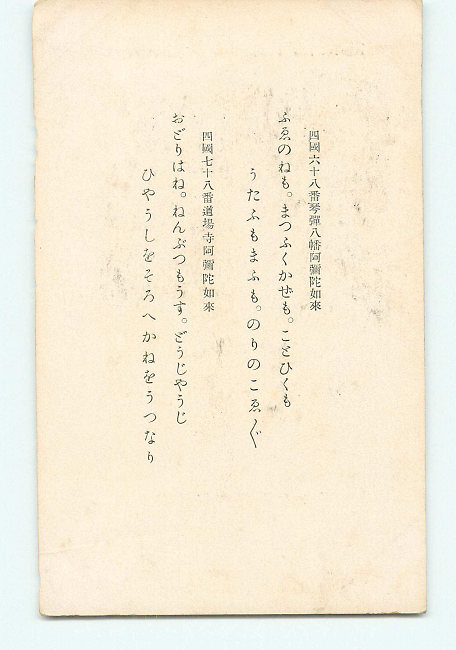 四國六十八番琴彈八幡阿彌陀如來
ふゑのねも。まつふくかぜも。ことひくも
うたふもまふも。のりのこゑ〴〵
四國七十八番道場寺阿彌陀如來
おどりはね。ねんぶつもうす。どうじやうじ
ひやうしをそろへかねをうつなり